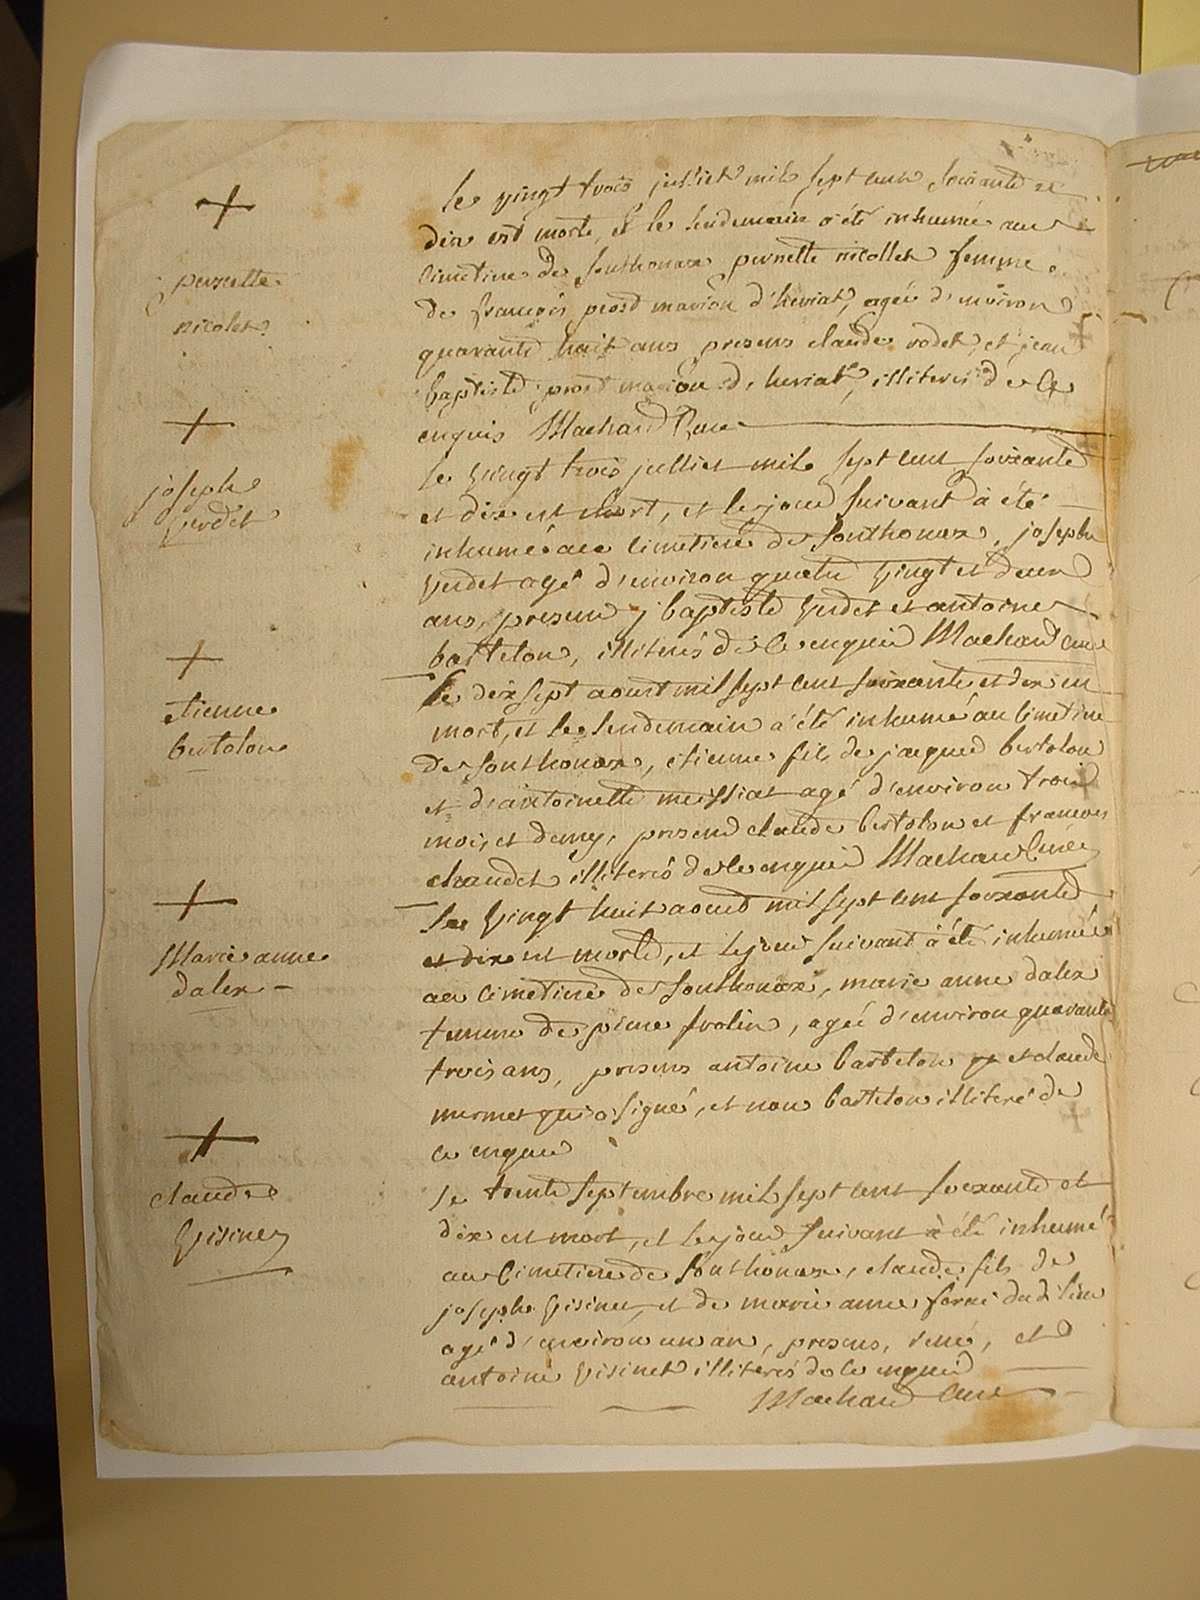 pernette
nicolet
joseph
verdet
etienne
bertolon
Marie anne
dalex
claude
visinet
le vingt trois julliet mil sept cent soixante et
dix est morte, et le lendemain a été inhumée au
cimetiere de sonthonax pernette nicollet femme
de françois prost marion d'heriat, agée d'environ
quarante huit ans presens claude rodet, et jean
baptiste prost marion d'heriat, illiterés de ce
enquis Machard Cure
le vingt trois julliet mil sept cent soixante
et dix est mort, et le jour suivant à été
inhumé au cimetiere de sonthonax, joseph
verdet agé d'environ quatre vingt et deux
ans, presens j baptiste verdet et antoine
bertelon, illiterés de ce enquis Machard cure
le dix sept aoust mil sept cent soixante et dix est
mort, et le lendemain a été inhumé au cimetiere
de sonthonax, etienne fils de jacques bertolon
et d'antoinette meissiat agé d'environ trois
mois et demy, presens claude bertolon et françois
chaudet illiterés de ce enquis Machard Curé
le vingt huit aoust mil sept cent soixante
et dix est morte, et le jour suivant à été inhumée
au cimetiere de sonthonax, marie anne dalex
femme de pierre frolin, agée d'environ quarante
trois ans, presens antoine bartelon et claude
mermet qui a signé, et non bartelon illiteré de
ce enquis
le trente septembre mil sept cent soixante et
dix est mort, et le jour suivant à été inhumé
au cimetiere de sonthonax, claude fils de
joseph visinet, et de marie anne ferré du d. lieu
agé d'environ un an, presens, rené, et
antoine visinet illiterés de ce enquis
Machard cure